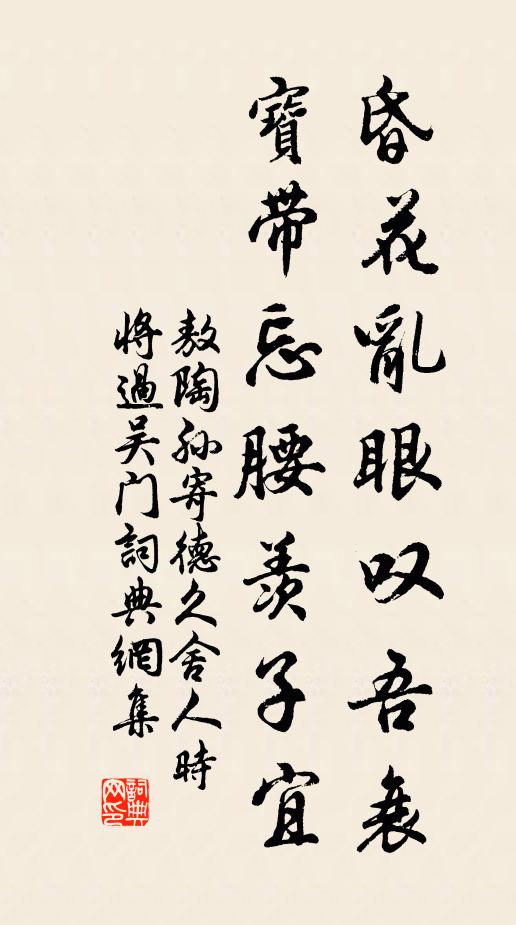 昏花亂眼叹吾衰
寶带忘腰羡子宜
敖陶孙寄德久舍人時
將過吴门詞典網集
詞典网印